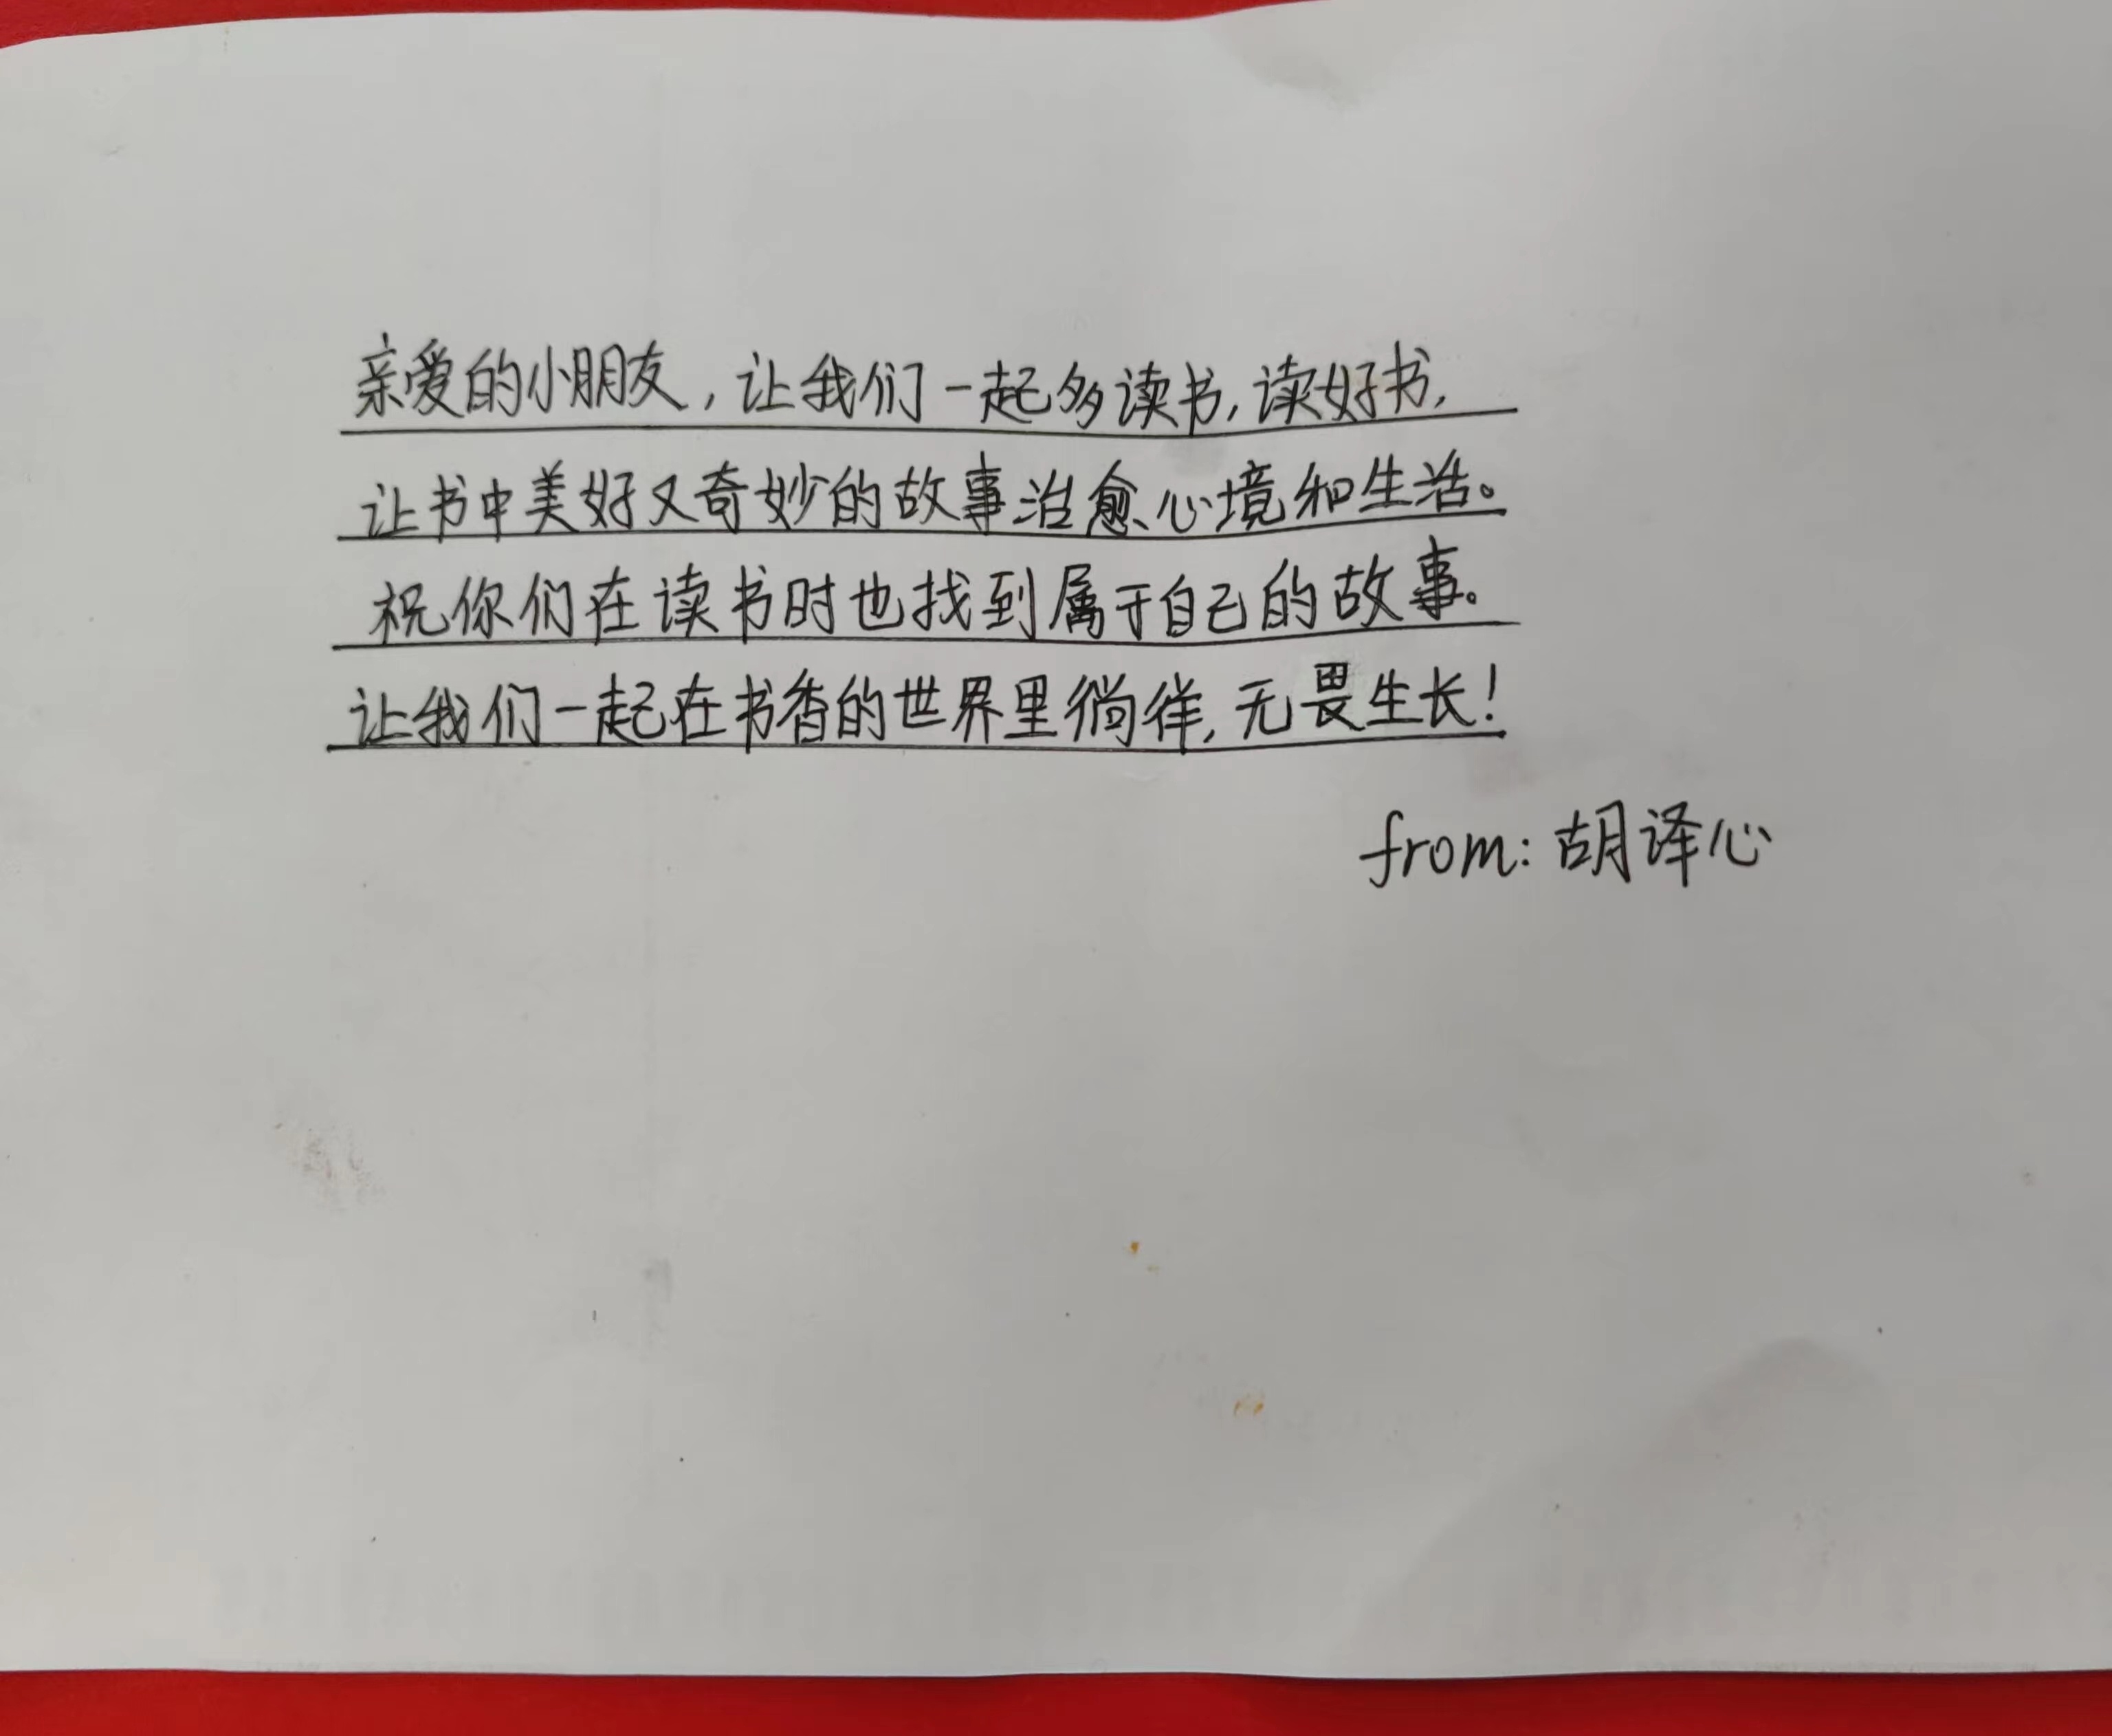 亲爱的小朋友，让我们一起多读书，读好书，
让书中美好又奇妙的故事治愈心境和生活。
祝你们在读书时也找到属于自己的故事。
让我们一起在书香的世界里徜徉，无畏生长！
from：胡译心